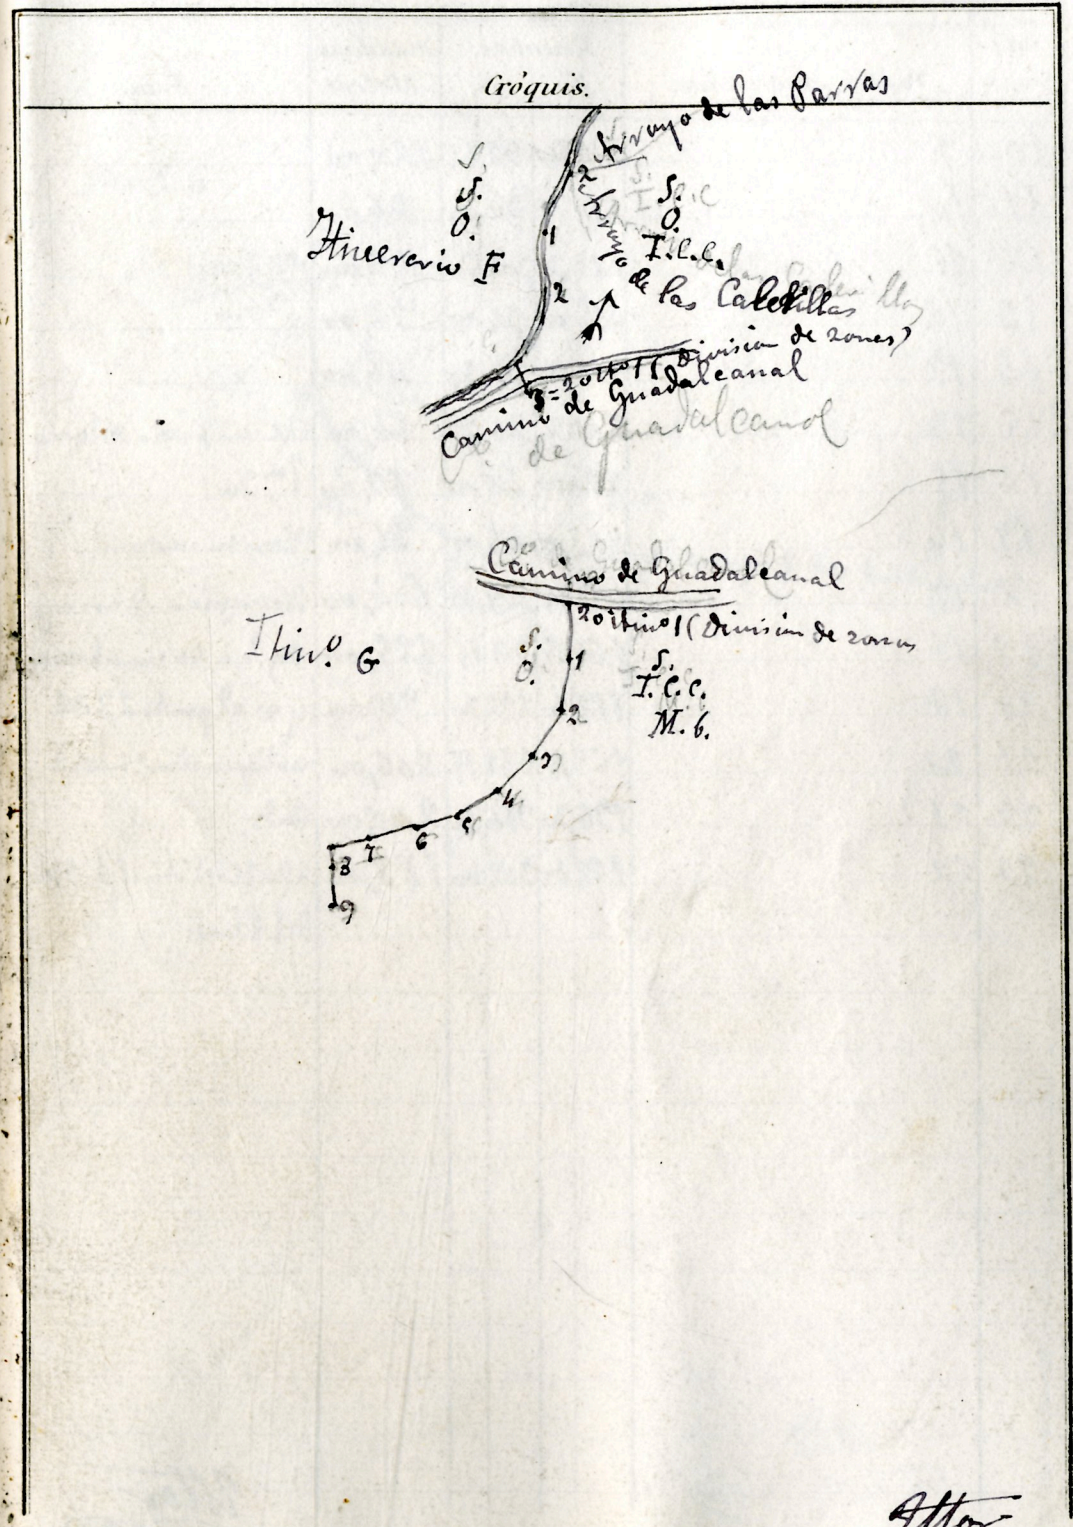 Cróquis.
Arroyo de las Parras
2
S.
O.
S.
O.
I.C.C.
Itinerario F
1
2
Arroyo de las Caletillas
3=20 itº 1 (Division de zonas)
Camino de Guadalcanal
de Guadalcanal
Camino de Guadalcanal
20 itinº 1 (Division de zonas
Itinº. G
S.
O.
1
S.
I.C.C.
M.b.
2
3
4
5
6
7
8
9